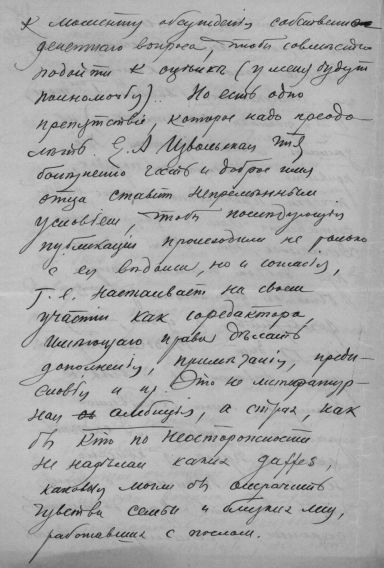 к моменту обсуждения собственно
денежнаго вопроса, чтобы совместно
подойти к оценке (у меня будут
полномочія). Но есть одно
препятствіе, которое надо преодо-
леть. Е. А Извольская
честь и доброе имя
отца ставит непременным
условіем, чтобы последующія
публикаціи происходили не только
с ея ведома, но и согласія,
т. е. настаивает на своем
участіи как соредактора,
имеющаго право делать
дополненія, примечанія, преди-
словія и пр. Это не литератур-
ная амбиція, а страх, как
бы кто по неосторожности
не наделал каких gaffes,
каковыя могли бы омрачить
чувства семьи и близких лиц,
работавших с послом.